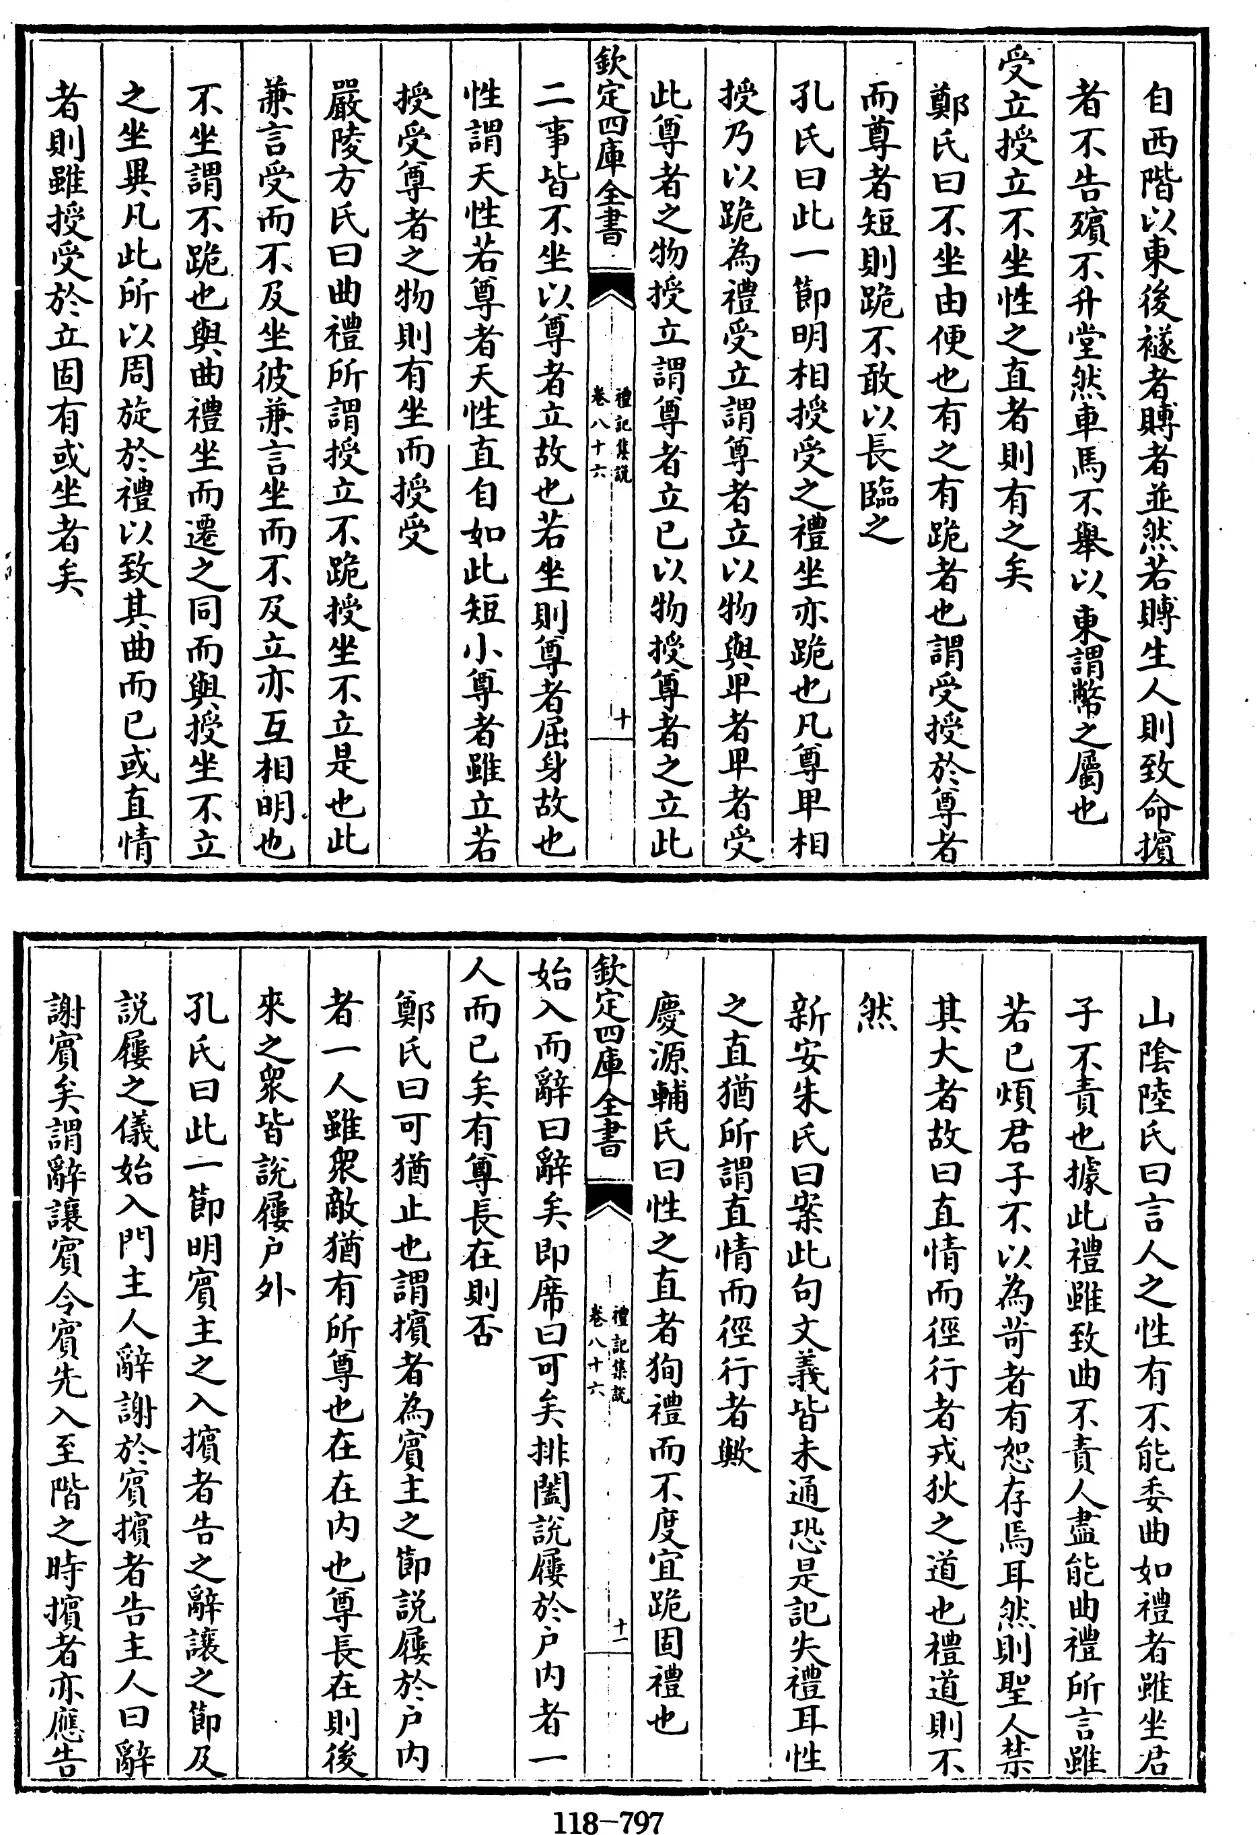 自西階以東後襚者賻者並然若賻生人則致命擯
者不告殯不升堂然車馬不舉以東謂幣之屬也
受立授立不坐性之直者則有之矣
鄭氏曰不坐由便也有之有跪者也謂受授於尊者
而尊者短則跪不敢以長臨之
孔氏曰此一節明相授受之禮坐亦跪也凡尊卑相
授乃以跪為禮受立謂尊者立以物與卑者卑者受
此尊者之物授立謂尊者立已以物授尊者之立此
欽定四庫全書
禮記集說
卷八十六
十
二事皆不坐以尊者立故也若坐則尊者屈身故也
性謂天性若尊者天性直自如此短小尊者雖立若
授受尊者之物則有坐而授受
嚴陵方氏曰曲禮所謂授立不跪授坐不立是也此
兼言受而不及坐彼兼言坐而不及立亦互相明也
不坐謂不跪也與曲禮坐而遷之同而與授坐不立
之坐異凡此所以周旋於禮以致其曲而已或直情
者則雖授受於立固有或坐者矣
山陰陸氏曰言人之性有不能委曲如禮者雖坐君
子不責也據此禮雖致曲不責人盡能曲禮所言雖
若已煩君子不以為苛者有恕存焉耳然則聖人禁
其大者故曰直情而徑行者戎狄之道也禮道則不
然
新安朱氏曰案此句文義皆未通恐是記失禮耳性
之直猶所謂直情而徑行者歟
慶源輔氏曰性之直者狥禮而不度宜跪固禮也
欽定四庫全書
禮記集說
卷八十六
十一
始入而辭曰辭矣即席曰可矣排闔說屨於戶內者一
人而已矣有尊長在則否
鄭氏曰可猶止也謂擯者為賓主之節說屨於戶內
者一人雖衆敵猶有所尊也在在內也尊長在則後
來之衆皆說屨戶外
孔氏曰此一節明賓主之入擯者告之辭讓之節及
說屨之儀始入門主人辭謝於賓擯者告主人曰辭
謝賓矣謂辭讓賓令賓先入至階之時擯者亦應告
118-797